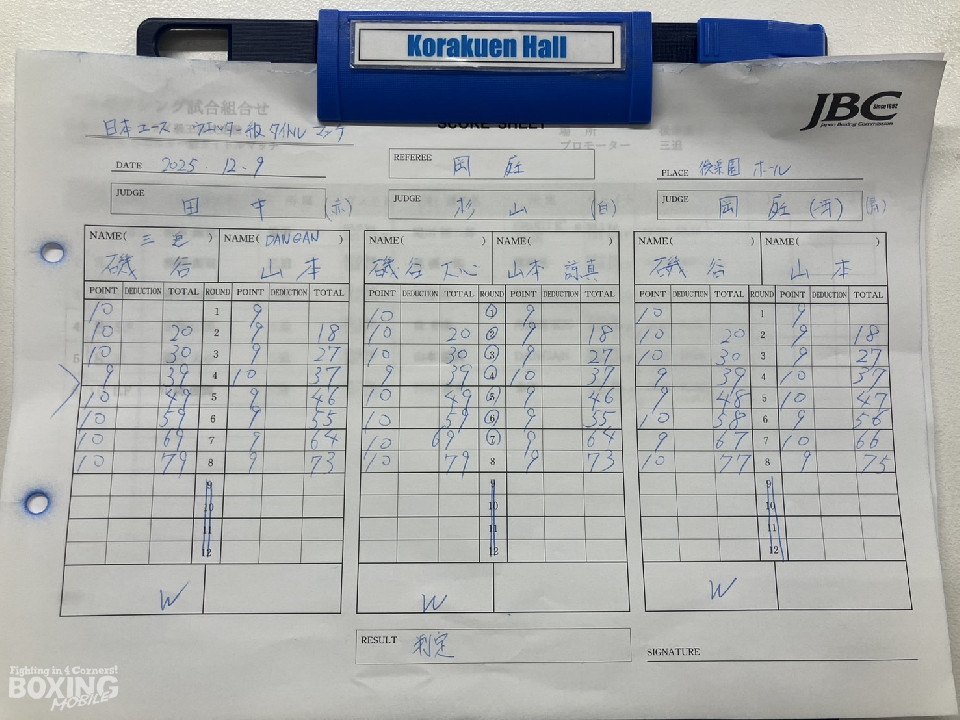 Korakuen Hall
JBC
Since 1952
Japan Boxing Commission
日本ユース ウェルター級 タイトルマッチ
SCORE SHEET
プロモーター 三迫
DATE 2025 12.9
REFEREE 岡庭
PLACE 後楽園ホール
JUDGE 田中 (赤)
JUDGE 杉山 (白)
JUDGE 岡庭 (青)
NAME( 三迫 ) NAME( DANGAN ) NAME( ) NAME( ) NAME( ) NAME( )
磯谷 山本 磯谷大心 山本諒真 磯谷 山本
POINT DEDUCTION TOTAL ROUND POINT DEDUCTION TOTAL POINT DEDUCTION TOTAL ROUND POINT DEDUCTION TOTAL POINT DEDUCTION TOTAL ROUND POINT DEDUCTION TOTAL
10 1 9 10 1 9 10 1 9
10 20 2 9 18 10 20 2 9 18 10 20 2 9 18
10 30 3 9 27 10 30 3 9 27 10 30 3 9 27
9 39 4 10 37 9 39 4 10 37 9 39 4 10 37
10 49 5 9 46 10 49 5 9 46 9 48 5 10 47
10 59 6 9 55 10 59 6 9 55 10 58 6 9 56
10 69 7 9 64 10 69 7 9 64 9 67 7 10 66
10 79 8 9 73 10 79 8 9 73 10 77 8 9 75
9 9 9
10 10 10
11 11 11
12 12 12
W W W
RESULT 判定
SIGNATURE
Fighting in 4 Corners!
BOXING
MOBILE